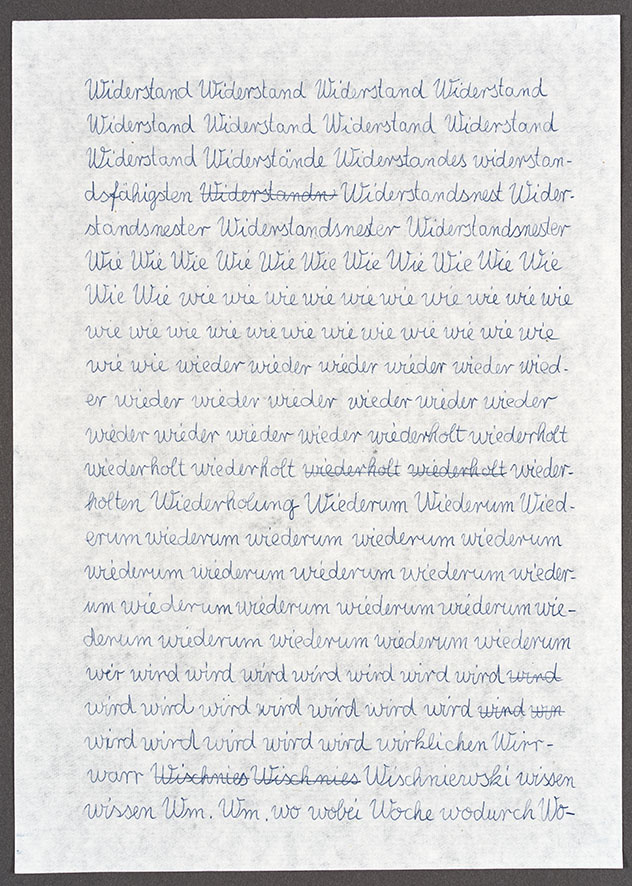 Widerstand Widerstand Widerstand Widerstand
Widerstand Widerstand Widerstand Widerstand
Widerstand Widerstände Widerstandes widerstan-
dsfähigsten Widerstandn Widerstandsnest Wider-
standsnester Widerstandsnester Widerstandsnester
Wie Wie Wie Wie Wie Wie Wie Wie Wie Wie Wie
Wie Wie wie wie wie wie wie wie wie wie wie wie
wie wie wie wie wie wie wie wie wie wie wie wie
wie wie wieder wieder wieder wieder wieder wied-
er wieder wieder wieder wieder wieder wieder
wieder wieder wieder wieder wiederholt wiederholt
wiederholt wiederholt wiederholt wiederholt wieder-
holten Wiederholung Wiederum Wiederum Wied-
erum wiederum wiederum wiederum wiederum
wiederum wiederum wiederum wiederum wieder-
um wiederum wiederum wiederum wiederum wie-
derum wiederum wiederum wiederum wiederum
wir wird wird wird wird wird wird wird wind
wird wird wird wird wird wird wird wind win
wird wird wird wird wird wirklichen Wirr-
warr Wischnies Wischnies Wischniewski wissen
wissen Wm. Wm. wo wobei Woche wodurch Wo-